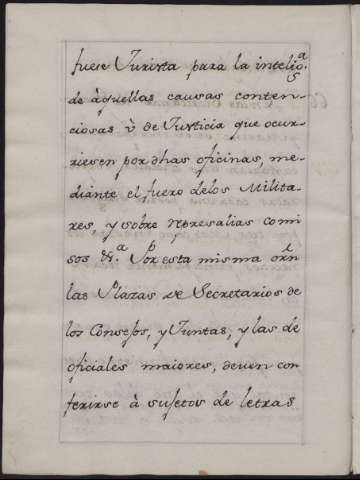 fuese Jurista para la intelig.ª
de àquellas causas conten-
ciosas ù de Justicia que ocur-
riesen por dhas oficinas, me-
diante el fuero delos Milita-
res, y sobre represalias comi
sos &.ª Por esta misma orn
las Plazas de Secretarios de
los Consejos, y Juntas, y las de
oficiales maiores, deven con
ferirse à sujetos de letras